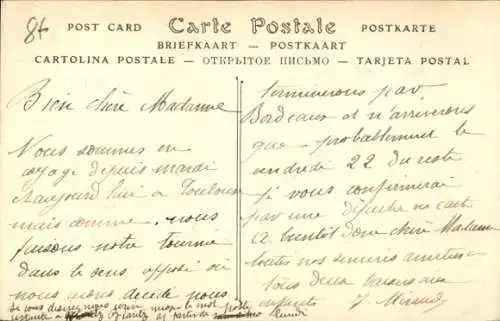 86
POST CARD Carte Postale POSTKARTE
BRIEFKAART — POSTKAART
CARTOLINA POSTALE — ОТКРЫТОЕ ПИСЬМО — TARJETA POSTAL
Bien chère Madame
Nous sommes en
voyage depuis mardi
et aujourd'hui à Toulouse
mais comme nous
faisons notre tournée
dans le sens opposé où
nous avons décidé nous
si vous désirez nous écrire un mot poste
restante à Biaritz à partir de lundi
terminerons par
Bordeaux et n'arriverons
que probablement le
vendredi 22 du reste
je vous confirmerai
par une dépêche ou carte
A bientôt donc chère Madame
toutes nos sincères amitiés
tous deux